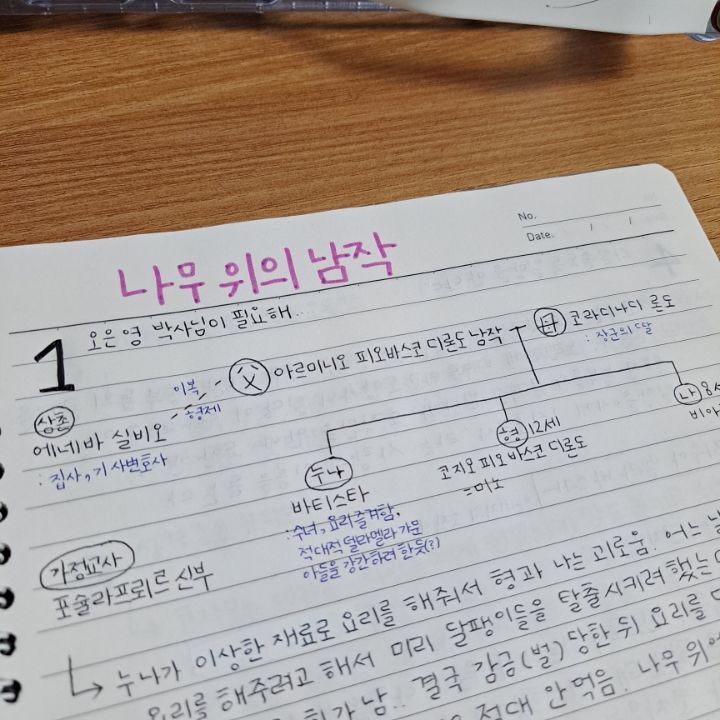 No.
Date. / /
나무 위의 남작
1
오은영 박사님이 필요해...
父 아르미니오 피오바스코 디론도 남작
母 코라디나 디 론도
: 장군의 딸
이복
형제
삼촌
에네바 실비오
: 집사, 기사변호사
누나
바티스타
: 수녀, 요리 즐겨함.
적대적 델라멜라 가문
아들을 강간하려 한듯(?)
형 12세
코지모 피오바스코 디론도
=미노
나 8세
비아
가정교사
포슐라프뢰르 신부
↳ 누나가 이상한 재료로 요리를 해줘서 형과 나는 괴로움. 어느 날
요리를 해주려고 해서 미리 달팽이들을 탈출시키려 했는데
화가 남.. 결국 감금(벌) 당한 뒤 요리를
절대 안 먹음. 나무 위에